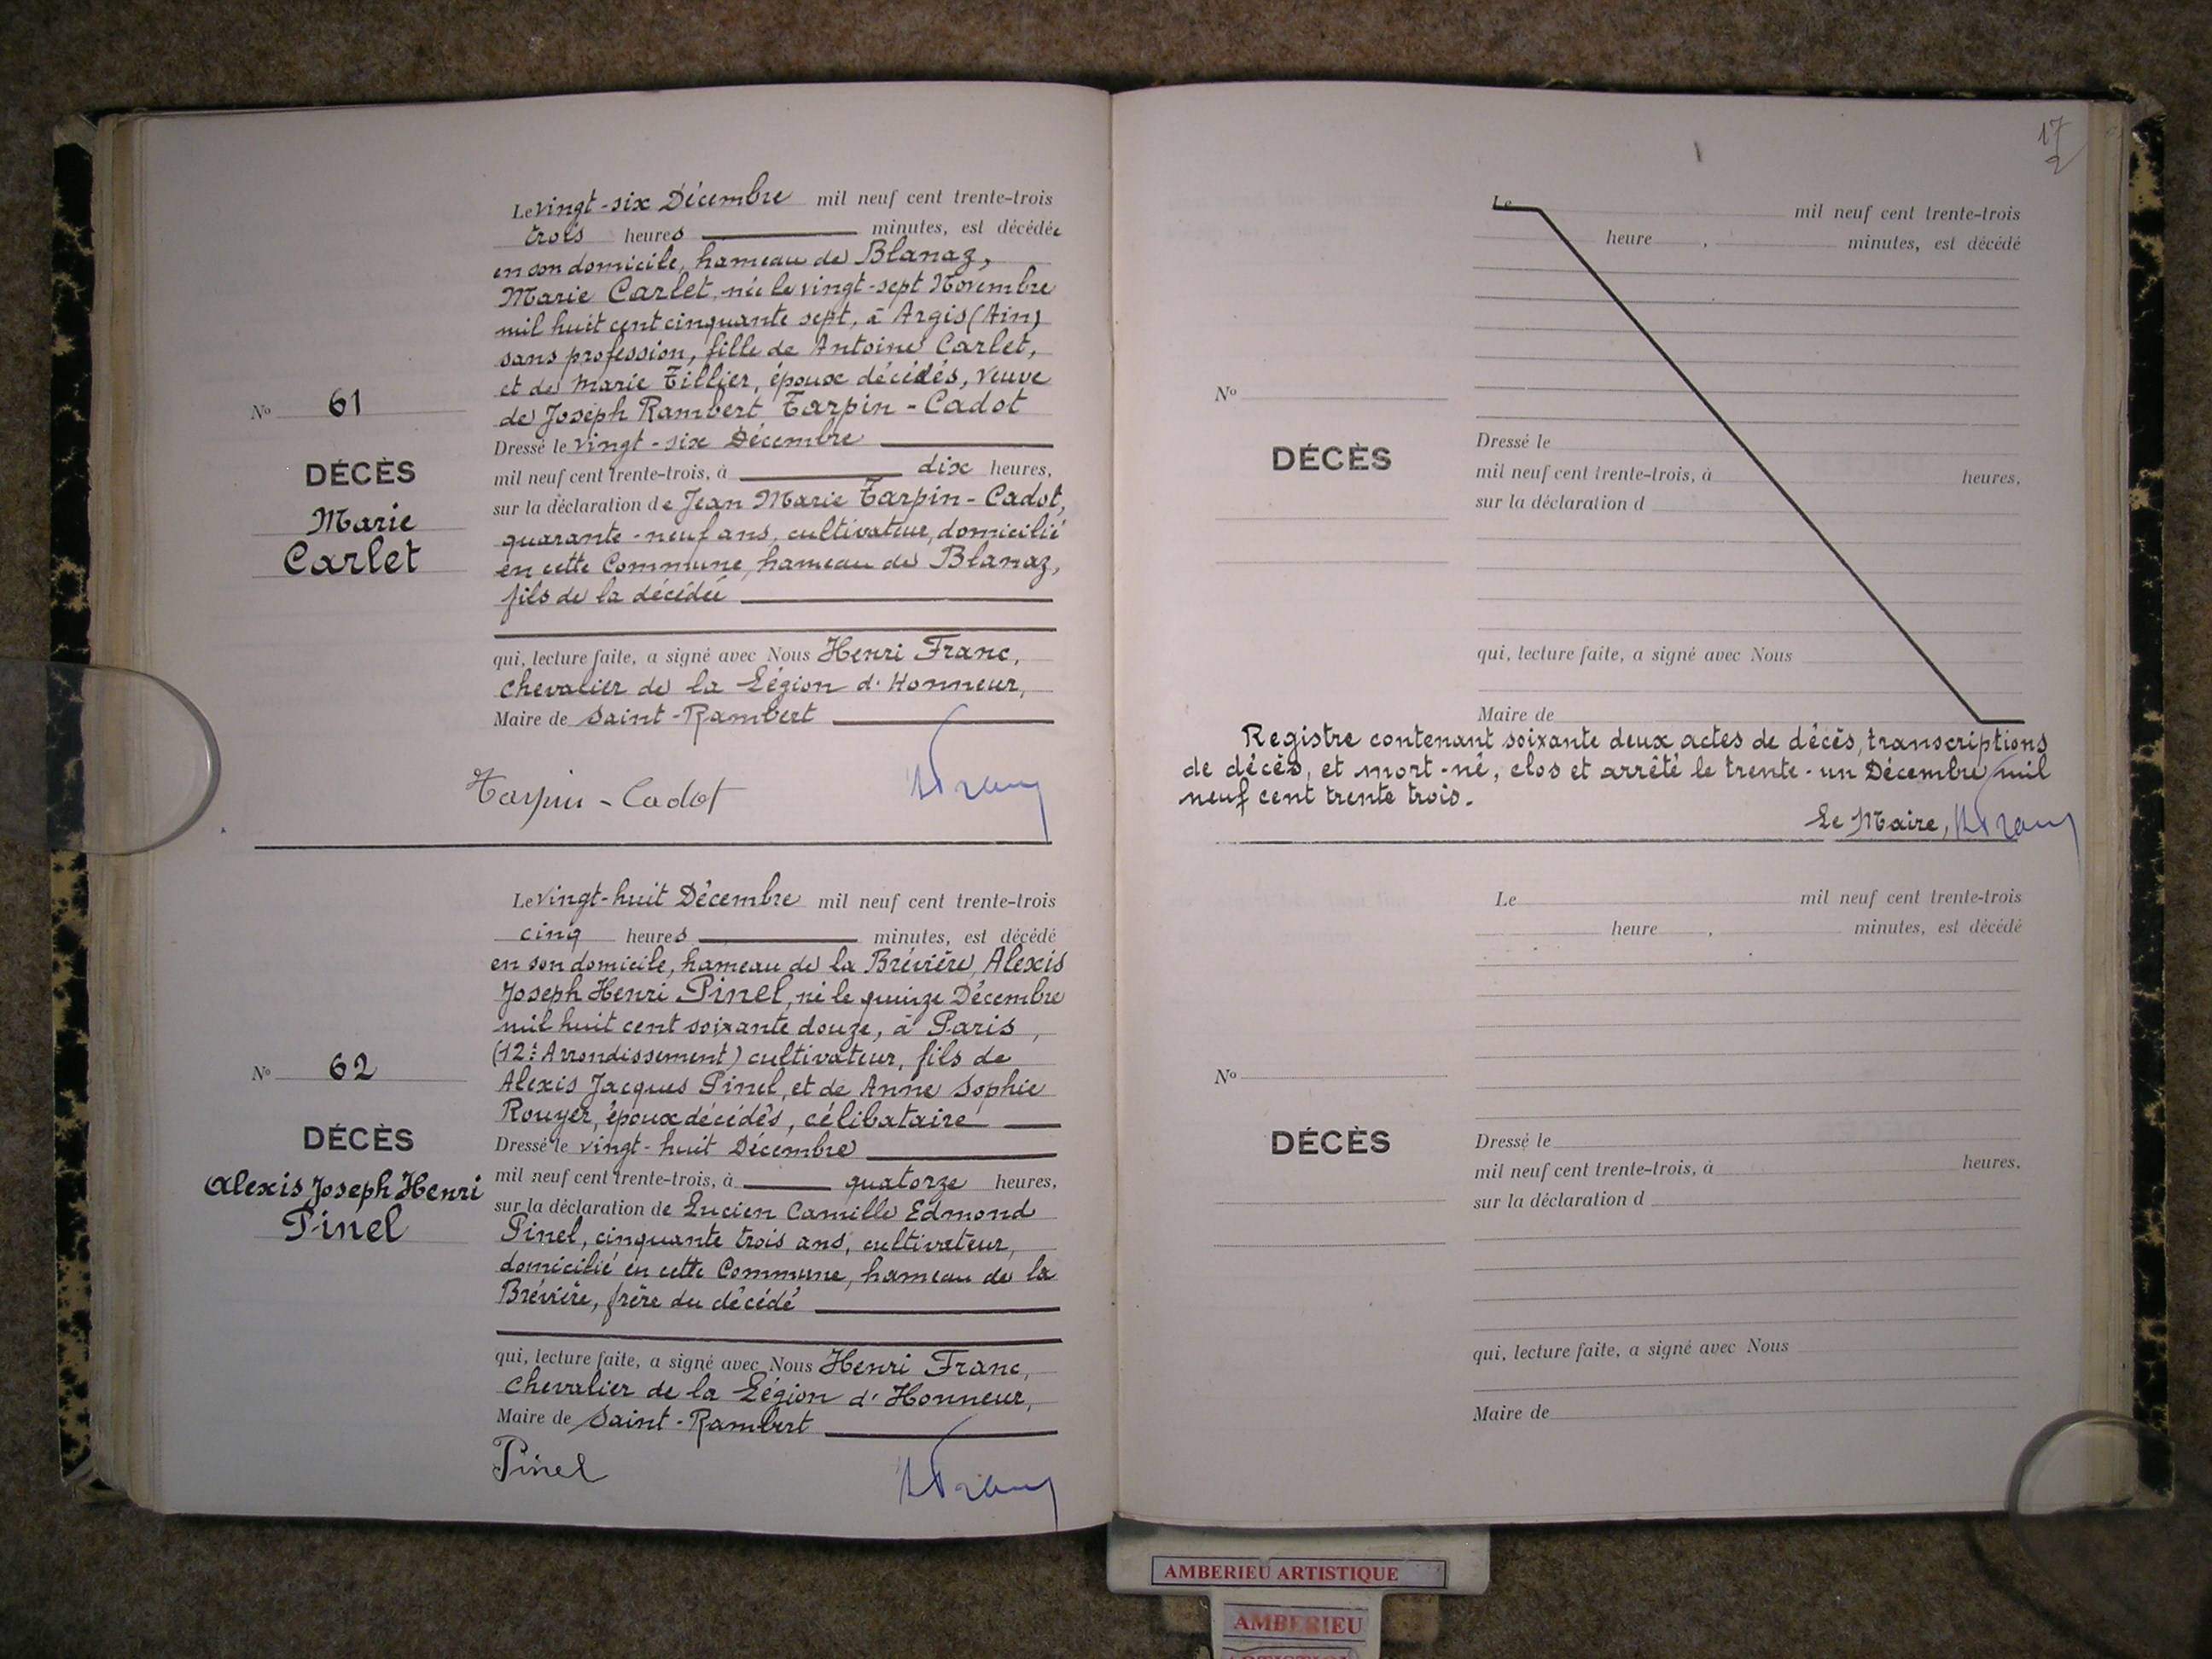 Le vingt-six Décembre mil neuf cent trente-trois
trois heures minutes, est décédée
en son domicile, hameau de Blanaz,
Marie Carlet, née le vingt-sept Novembre
mil huit cent cinquante sept, à Argis (Ain)
sans profession, fille de Antoine Carlet,
et de Marie Tillier, époux décédés, veuve
de Joseph Rambert Tarpin-Cadot
Dressé le vingt-six Décembre
mil neuf cent trente-trois, à dix heures,
sur la déclaration de Jean Marie Tarpin-Cadot,
quarante-neuf ans, cultivateur, domicilié
en cette Commune, hameau de Blanaz,
fils de la décédée
qui, lecture faite, a signé avec Nous Henri Franc,
Chevalier de la Légion d'Honneur,
Maire de Saint-Rambert
Tarpin-Cadot HFranc
No 61
DÉCÈS
Marie
Carlet
Le vingt-huit Décembre mil neuf cent trente-trois
cinq heures minutes, est décédé
en son domicile, hameau de la Brévière, Alexis
Joseph Henri Pinel, né le quinze Décembre
mil huit cent soixante douze, à Paris,
(12e Arrondissement) cultivateur, fils de
Alexis Jacques Pinel, et de Anne Sophie
Rouyer, époux décédés, célibataire
Dressé le vingt-huit Décembre
mil neuf cent trente-trois, à quatorze heures,
sur la déclaration de Lucien Camille Edmond
Pinel, cinquante trois ans, cultivateur,
domicilié en cette Commune, hameau de la
Brévière, frère du décédé
qui, lecture faite, a signé avec Nous Henri Franc,
Chevalier de la Légion d'Honneur,
Maire de Saint-Rambert
Pinel HFranc
No 62
DÉCÈS
Alexis Joseph Henri
Pinel
17
2
Le mil neuf cent trente-trois
heure , minutes, est décédé
No
DÉCÈS
Dressé le
mil neuf cent trente-trois, à heures,
sur la déclaration d
qui, lecture faite, a signé avec Nous
Maire de
Registre contenant soixante deux actes de décès, transcriptions
de décès, et mort-né, clos et arrêté le trente-un Décembre mil
neuf cent trente trois.
Le Maire, HFranc
Le mil neuf cent trente-trois
heure , minutes, est décédé
No
DÉCÈS
Dressé le
mil neuf cent trente-trois, à heures,
sur la déclaration d
qui, lecture faite, a signé avec Nous
Maire de
AMBERIEU ARTISTIQUE
AMBERIEU
ARTISTIQUE